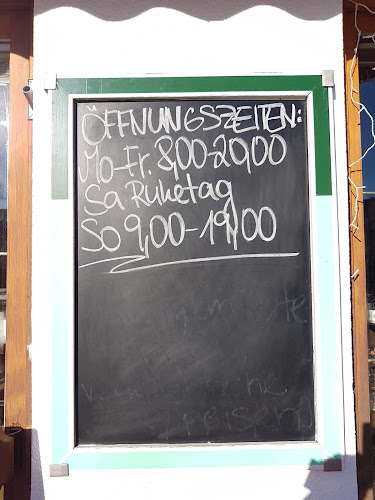 ÖFFNUNGSZEITEN:
Mo-Fr. 8,00-20,00
Sa Ruhetag
So 9,00-19,00